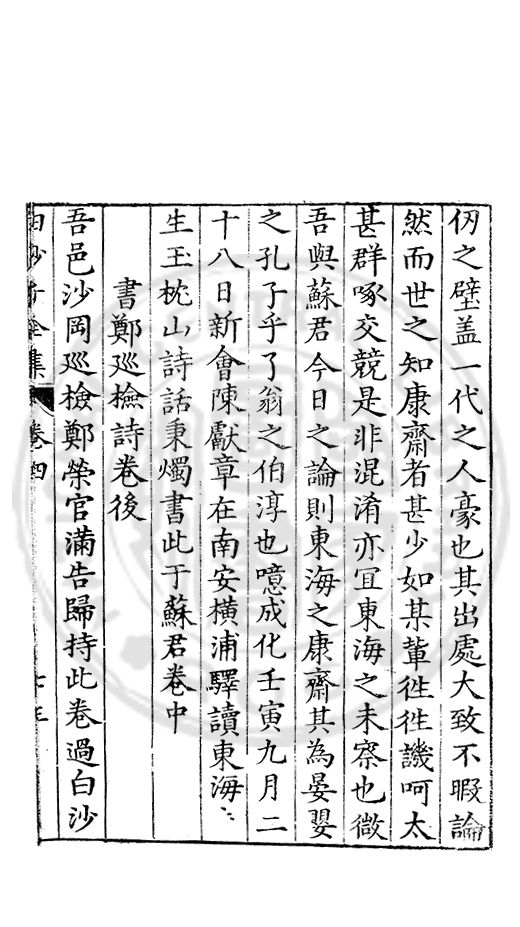 仭之壁盖一代之人豪也其出處大致不暇論
然而世之知康齋者甚少如某軰徃徃譏呵太
甚群啄交競是非混淆亦冝東海之未察也微
吾與蘇君今日之論則東海之康齋其為晏嬰
之孔子乎了翁之伯淳也噫成化壬寅九月二
十八日新會陳獻章在南安橫浦驛讀東海
生玉枕山詩話秉燭書此于蘇君卷中
書鄭廵檢詩卷後
吾邑沙岡廵檢鄭榮官滿告歸持此卷過白沙
白沙子全集 卷四